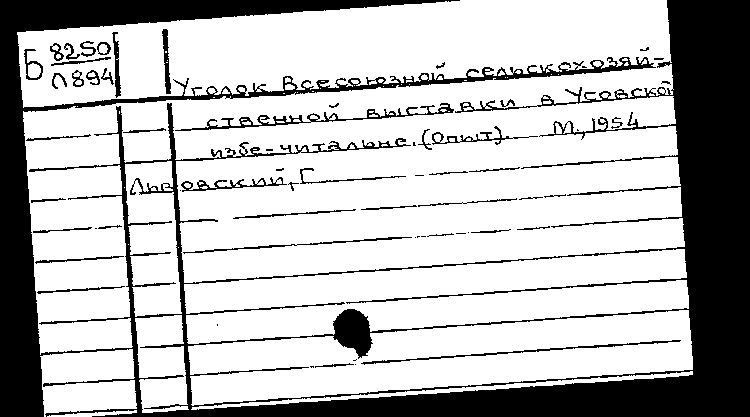 Б 8250
Л894
Уголок Всесоюзной сельскохозяй-
ственной выставки в Усовской
избе-читальне. (Опыт). М., 1954
Львовский, Г